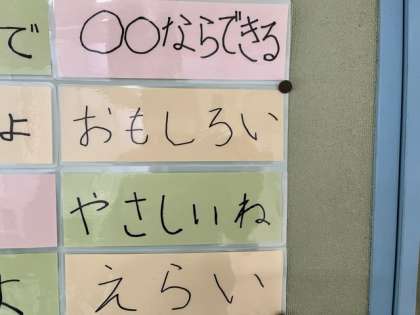 で
○○ならできる
よ
おもしろい
やさしいね
よ
えらい